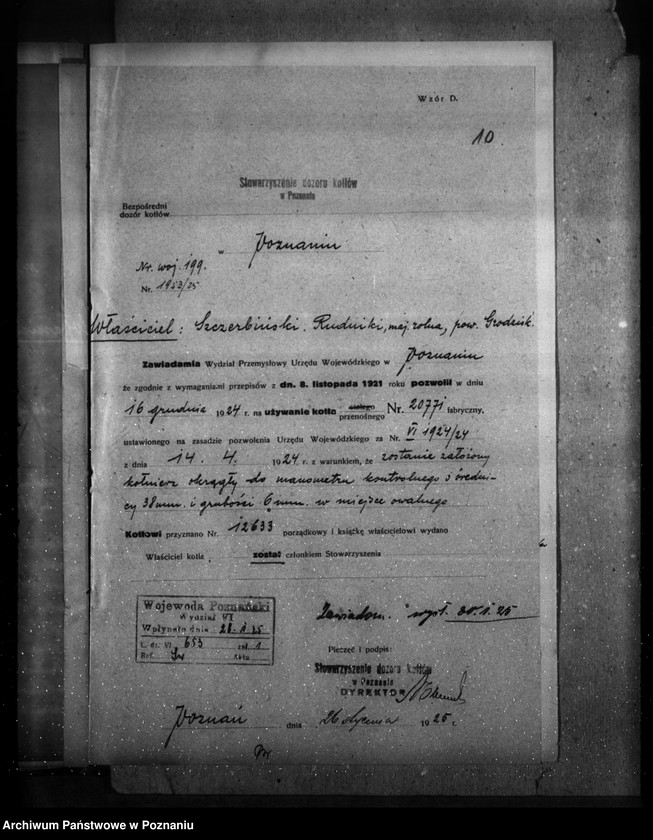 Wzór D.
10
Stowarzyszenie dozoru kotłów
w Poznaniu
Bezpośredni
dozór kotłów
w Poznaniu
Nr. woj. 199.
Nr. 1953/25
Właściciel: Szczerbiński. Rudniki, maj. rolna, pow. Grodzisk.
Zawiadamia Wydział Przemysłowy Urzędu Wojewódzkiego w Poznaniu
że zgodnie z wymaganiami przepisów z dn. 8. listopada 1921 roku pozwolił w dniu
16 grudnia 1924 r. na używanie kotła stałego przenośnego Nr. 20771 fabryczny,
ustawionego na zasadzie pozwolenia Urzędu Wojewódzkiego za Nr. VI 1924/24
z dnia 14. 4. 1924 r. z warunkiem, że zostanie założony
kołnierz okrągły do manometru kontrolnego o średni-
cy 38 mm. i grubości 6 mm. w miejsce owalnego
Kotłowi przyznano Nr. 12633 porządkowy i książkę właścicielowi wydano
Właściciel kotła został członkiem Stowarzyszenia
Wojewoda Poznański
Wydział VI
Wpłynęło dnia 28. 1. 25
L. dz. VI 653 zał. 1
Ref. Akta
Zawiadom. wyst. 30. 1. 25
Pieczęć i podpis:
Stowarzyszenie dozoru kotłów
w Poznaniu
DYREKTOR
Poznań dnia 26 stycznia 1925 r.
Archiwum Państwowe w Poznaniu